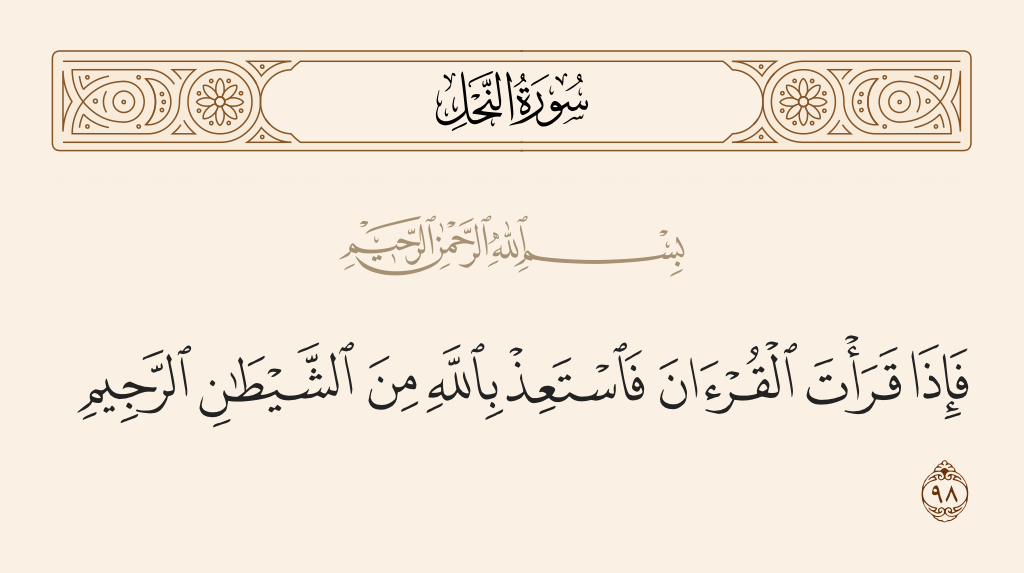 سُورَةُ النَّحْلِ
بِسْمِ ٱللَّهِ ٱلرَّحْمَٰنِ ٱلرَّحِيمِ
فَإِذَا قَرَأْتَ ٱلْقُرْءَانَ فَٱسْتَعِذْ بِٱللَّهِ مِنَ ٱلشَّيْطَٰنِ ٱلرَّجِيمِ
٩٨